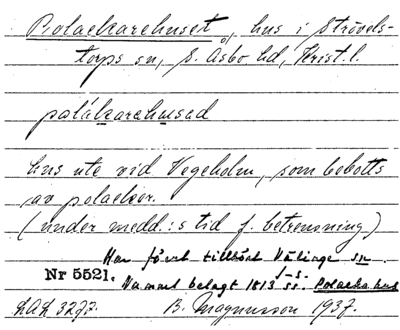 Polackarehuset, hus i Strövels-
torps sn, S. Åsbo hd, Krist. l.
palákarehusad
hus ute vid Vegeholm, som bebotts
av polacker.
(under medd.:s tid f. betresning)
Har förut tillhört Välinge sn
Nr 5521. Namnet belagt 1813 Polacka hus
LAL 3277. B. Magnusson 1937.